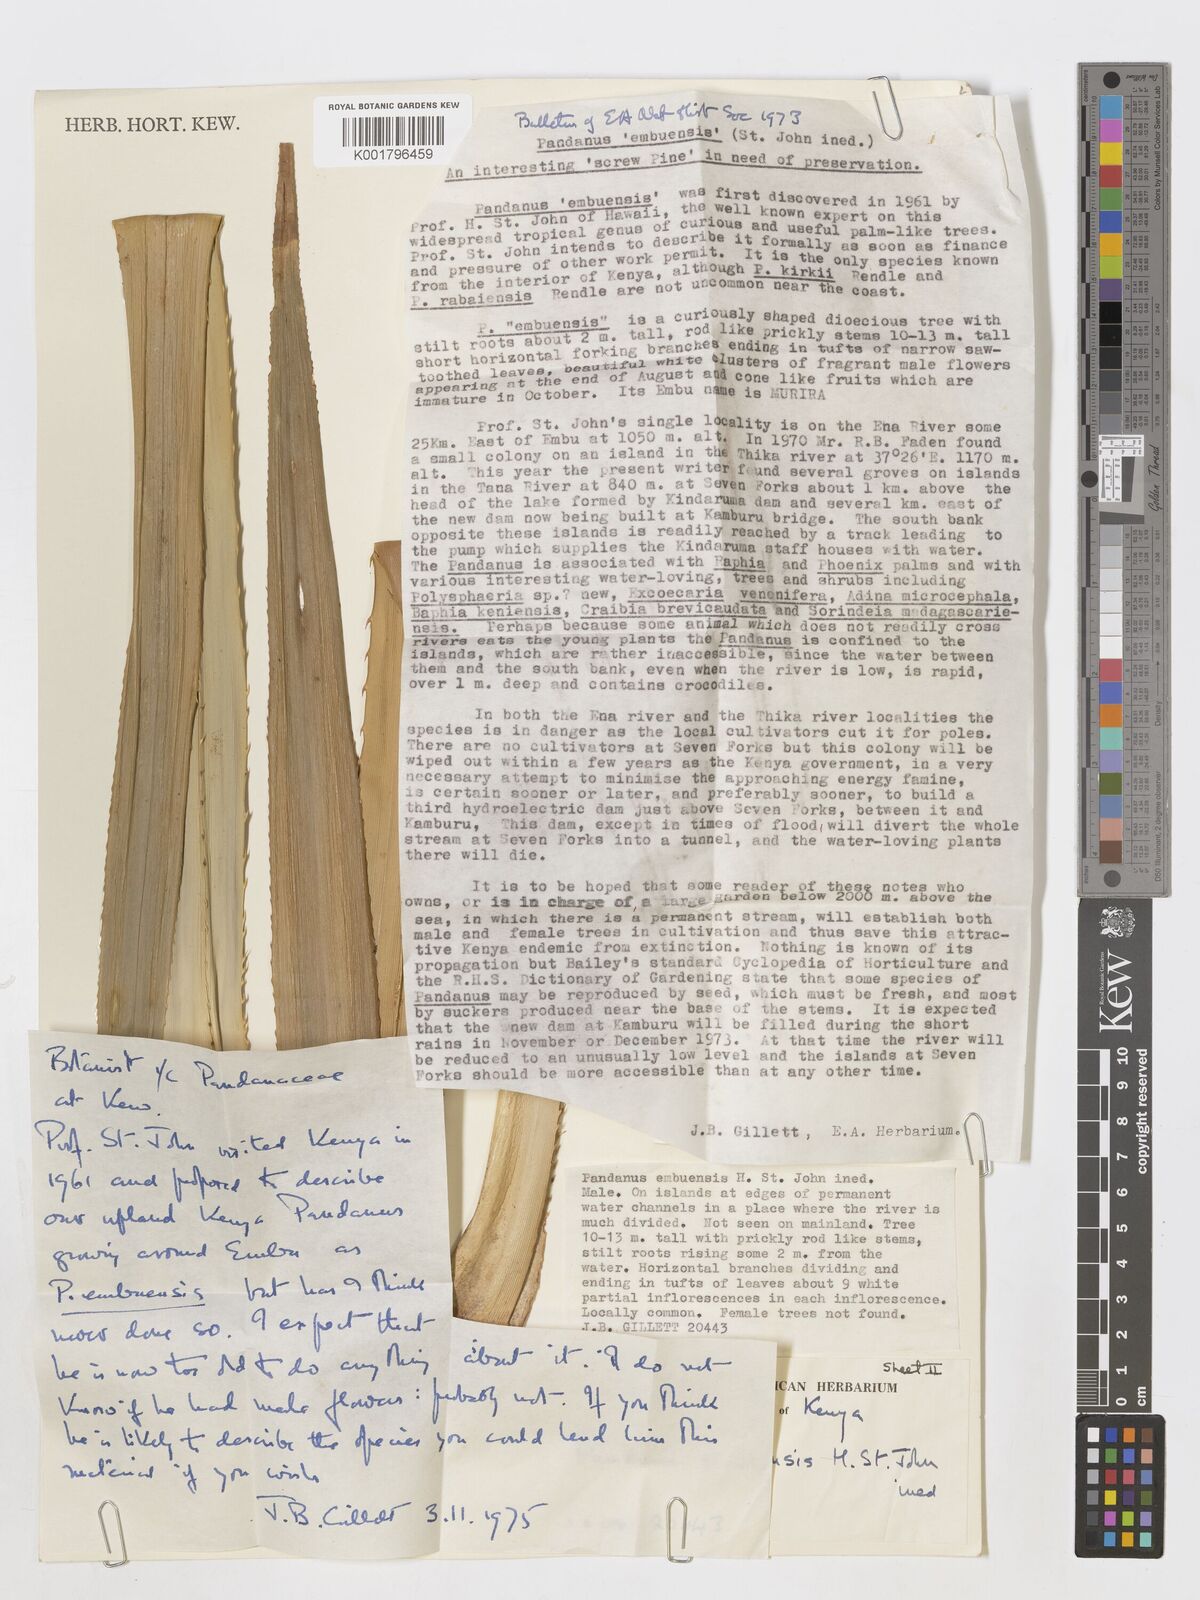 HERB. HORT. KEW.
ROYAL BOTANIC GARDENS KEW
K001796459
Bulletin of EA Nat Hist Soc 1973
Pandanus 'embuensis' (St. John ined.)
An interesting 'screw Pine' in need of preservation.
Pandanus 'embuensis' was first discovered in 1961 by
Prof. H. St. John of Hawaii, the well known expert on this
widespread tropical genus of curious and useful palm-like trees.
Prof. St. John intends to describe it formally as soon as finance
and pressure of other work permit. It is the only species known
from the interior of Kenya, although P. kirkii Rendle and
P. rabaiensis Rendle are not uncommon near the coast.
P. "embuensis" is a curiously shaped dioecious tree with
stilt roots about 2 m. tall, rod like prickly stems 10-13 m. tall
short horizontal forking branches ending in tufts of narrow saw-
toothed leaves, beautiful white clusters of fragrant male flowers
appearing at the end of August and cone like fruits which are
immature in October. Its Embu name is MURIRA
Prof. St. John's single locality is on the Ena River some
25Km. East of Embu at 1050 m. alt. In 1970 Mr. R.B. Faden found
a small colony on an island in the Thika river at 37°26'E. 1170 m.
alt. This year the present writer found several groves on islands
in the Tana River at 840 m. at Seven Forks about 1 km. above the
head of the lake formed by Kindaruma dam and several km. east of
the new dam now being built at Kamburu bridge. The south bank
opposite these islands is readily reached by a track leading to
the pump which supplies the Kindaruma staff houses with water.
The Pandanus is associated with Raphia and Phoenix palms and with
various interesting water-loving, trees and shrubs including
Polysphaeria sp.? new, Excoecaria venenifera, Adina microcephala,
Baphia keniensis, Craibia brevicaudata and Sorindeia madagascarie-
nsis. Perhaps because some animal which does not readily cross
rivers eats the young plants the Pandanus is confined to the
islands, which are rather inaccessible, since the water between
them and the south bank, even when the river is low, is rapid,
over 1 m. deep and contains crocodiles.
In both the Ena river and the Thika river localities the
species is in danger as the local cultivators cut it for poles.
There are no cultivators at Seven Forks but this colony will be
wiped out within a few years as the Kenya government, in a very
necessary attempt to minimise the approaching energy famine,
is certain sooner or later, and preferably sooner, to build a
third hydroelectric dam just above Seven Forks, between it and
Kamburu, This dam, except in times of flood, will divert the whole
stream at Seven Forks into a tunnel, and the water-loving plants
there will die.
It is to be hoped that some reader of these notes who
owns, or is in charge of, a large garden below 2000 m. above the
sea, in which there is a permanent stream, will establish both
male and female trees in cultivation and thus save this attrac-
tive Kenya endemic from extinction. Nothing is known of its
propagation but Bailey's standard Cyclopedia of Horticulture and
the R.H.S. Dictionary of Gardening state that some species of
Pandanus may be reproduced by seed, which must be fresh, and most
by suckers produced near the base of the stems. It is expected
that the new dam at Kamburu will be filled during the short
rains in November or December 1973. At that time the river will
be reduced to an unusually low level and the islands at Seven
Forks should be more accessible than at any other time.
J.B. Gillett, E.A. Herbarium.
Botanist i/c Pandanaceae
at Kew.
Prof. St. John visited Kenya in
1961 and proposed to describe
our upland Kenya Pandanus
growing around Embu as
P. embuensis but has I think
never done so. I expect that
he is now too old to do anything about it. I do not
know if he had male flowers: probably not. If you think
he is likely to describe the species you could lend him this
material if you wish
J.B. Gillett 3.11.1975
Pandanus embuensis H. St. John ined.
Male. On islands at edges of permanent
water channels in a place where the river is
much divided. Not seen on mainland. Tree
10-13 m. tall with prickly rod like stems,
stilt roots rising some 2 m. from the
water. Horizontal branches dividing and
ending in tufts of leaves about 9 white
partial inflorescences in each inflorescence.
Locally common. Female trees not found.
J.B. GILLETT 20443
Sheet II
ICAN HERBARIUM
of Kenya
nsis H. St. John
ined
Colors by Munsell Color Services Lab
Golden Thread
Density
D50 Illuminant, 2 degree observer
Royal Botanic Gardens
Kew
0 1 2 3 4 5 6 7 8 9 10
cm
copyright reserved